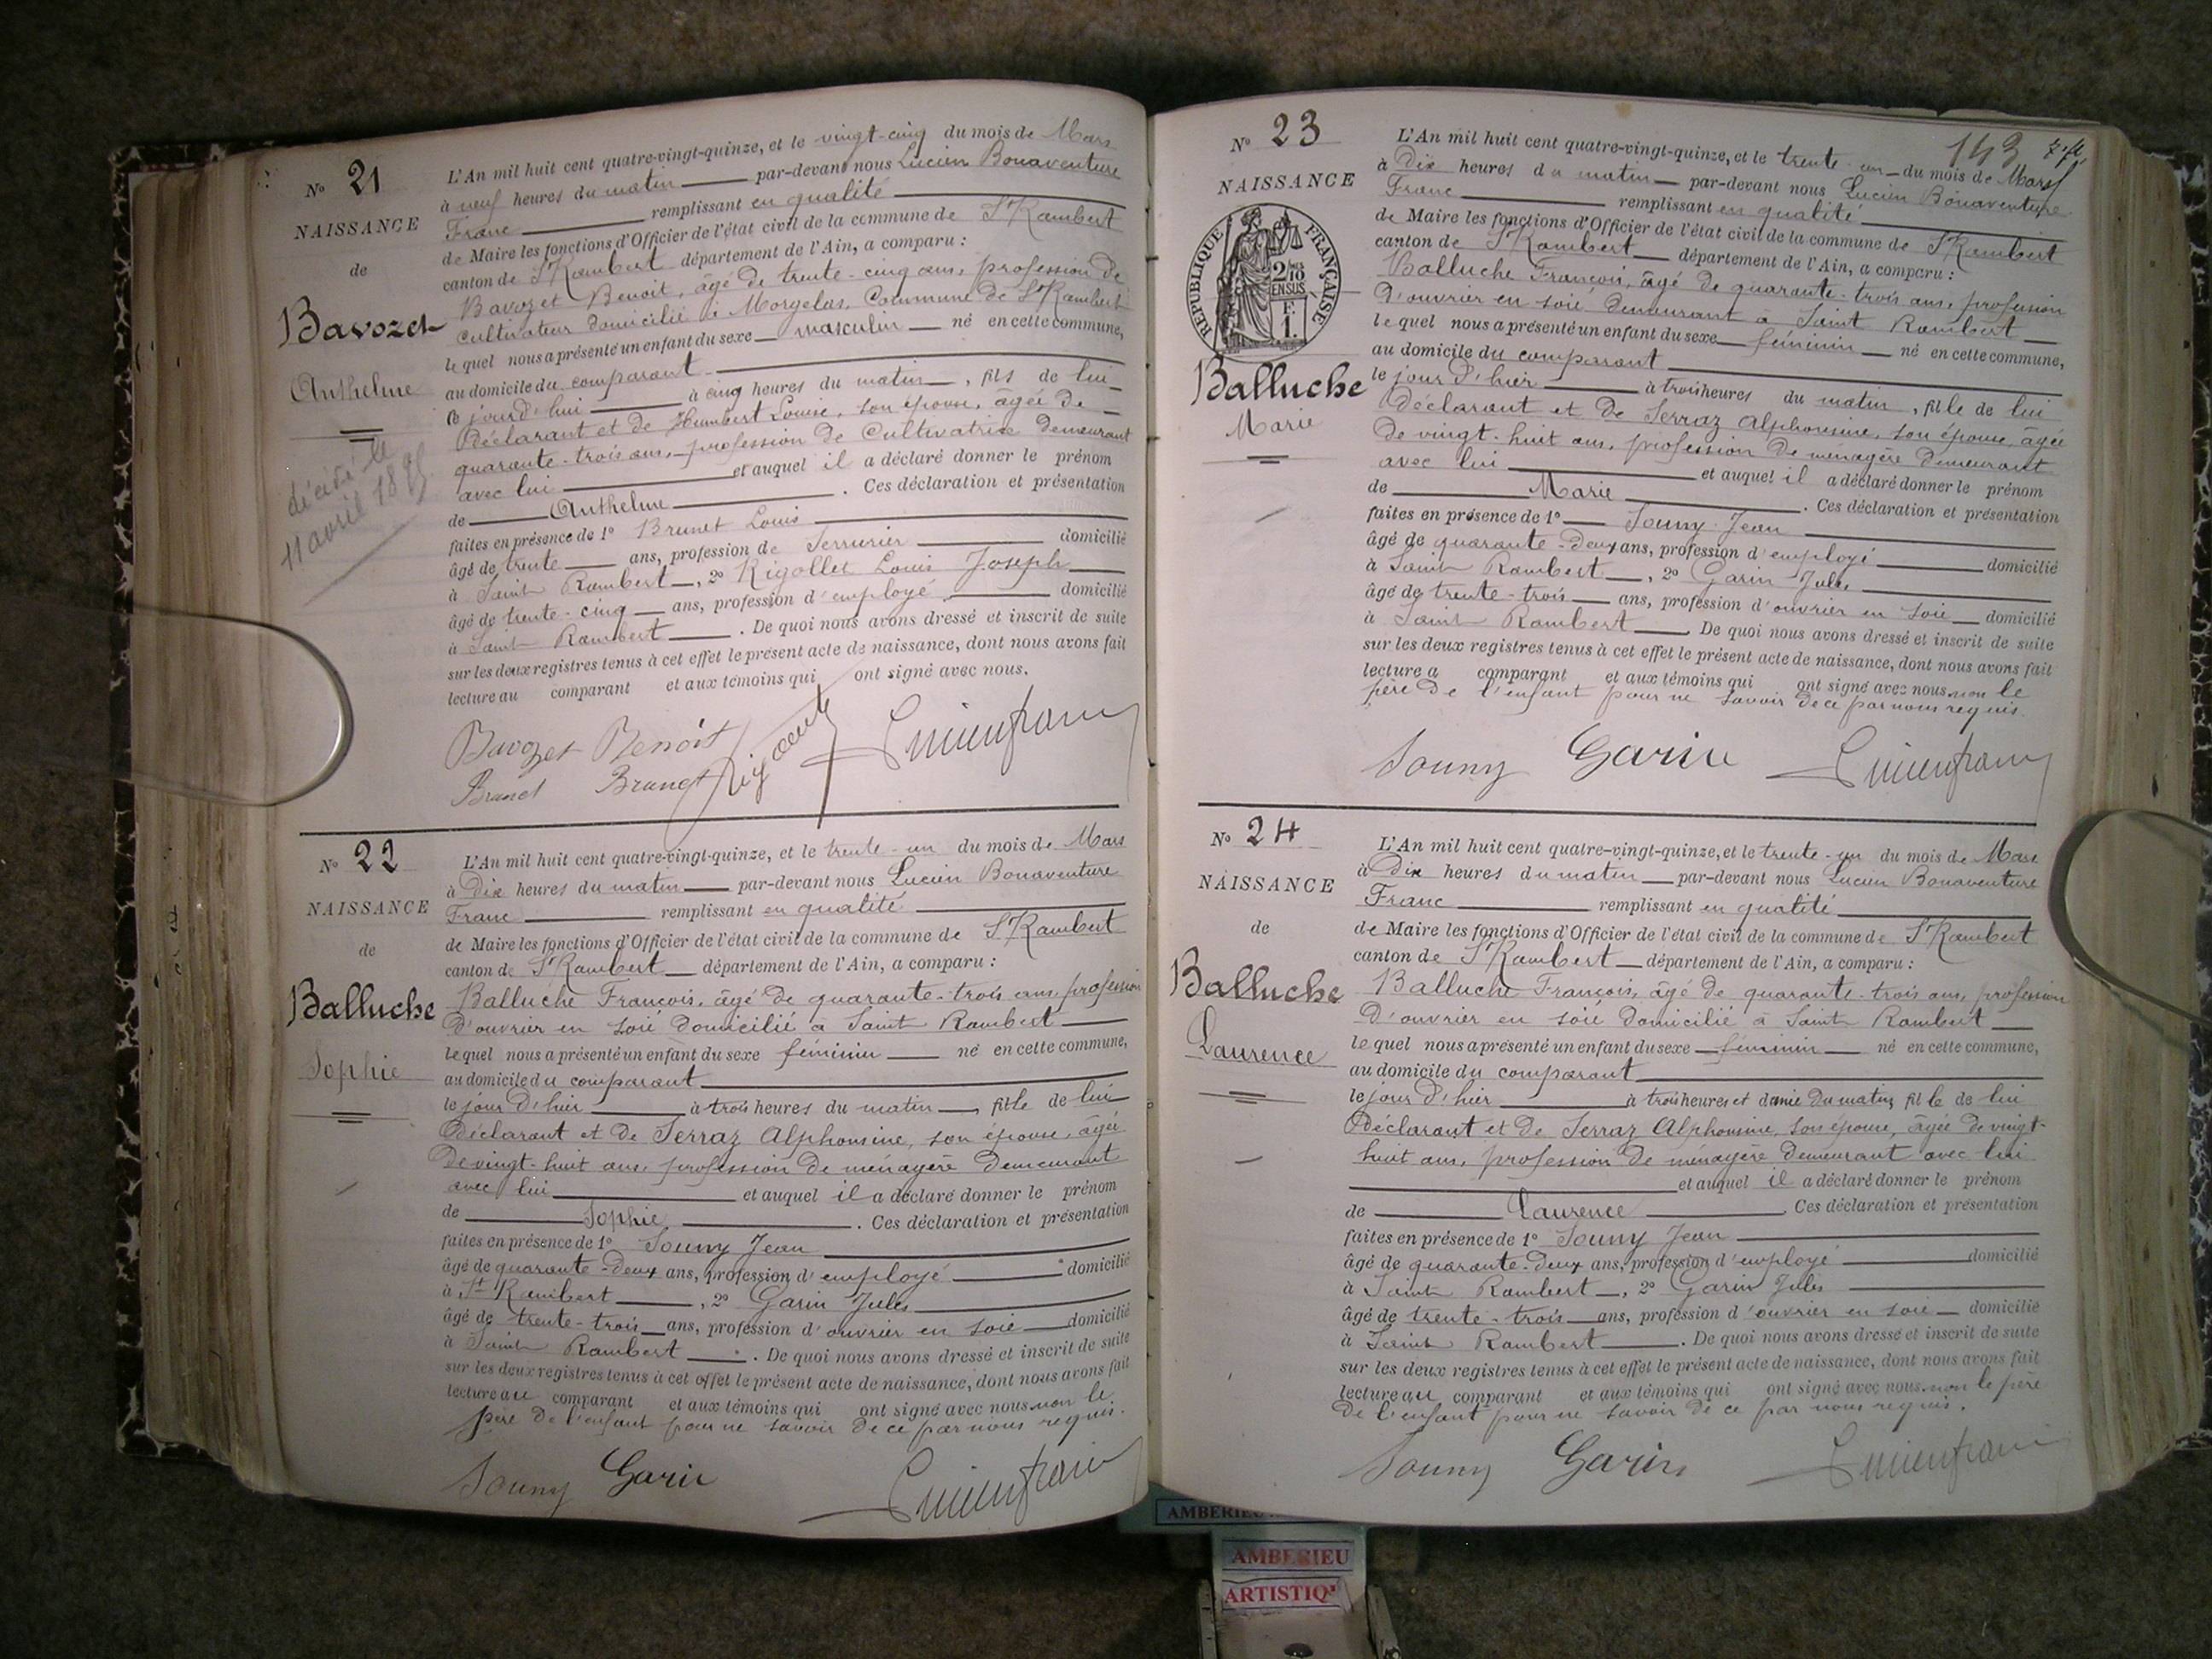 N° 21
NAISSANCE
de
Bavozet
Anthelme
décédé le
11 avril 1895
L'An mil huit cent quatre-vingt-quinze, et le vingt-cinq du mois de Mars
à neuf heures du matin par-devant nous Lucien Bonaventure
Franc remplissant en qualité
de Maire les fonctions d'Officier de l'état civil de la commune de St Rambert
canton de St Rambert département de l'Ain, a comparu :
Bavozet Benoit, âgé de trente-cinq ans, profession de
cultivateur domicilié à Morgelas, Commune de St Rambert
lequel nous a présenté un enfant du sexe masculin né en cette commune,
au domicile du comparant
ce jourd'hui à cinq heures du matin, fils de lui
déclarant et de Humbert Louise, son épouse, agée de
quarante-trois ans, profession de Cultivatrice demeurant
avec lui et auquel il a déclaré donner le prénom
de Anthelme. Ces déclaration et présentation
faites en présence de 1° Brunet Louis
âgé de trente ans, profession de Serrurier domicilié
à Saint Rambert, 2° Rigollet Louis Joseph
âgé de trente-cinq ans, profession d'employé domicilié
à Saint Rambert. De quoi nous avons dressé et inscrit de suite
sur les deux registres tenus à cet effet le présent acte de naissance, dont nous avons fait
lecture au comparant et aux témoins qui ont signé avec nous.
Bavozet Benoit
Brunet Brunet Lucien franc
N° 22
NAISSANCE
de
Balluche
Sophie
L'An mil huit cent quatre-vingt-quinze, et le trente-un du mois de Mars
à Dix heures du matin par-devant nous Lucien Bonaventure
Franc remplissant en qualité
de Maire les fonctions d'Officier de l'état civil de la commune de St Rambert
canton de St Rambert département de l'Ain, a comparu :
Balluche François, âgé de quarante-trois ans, profession
d'ouvrier en soie domicilié à Saint Rambert
lequel nous a présenté un enfant du sexe féminin né en cette commune,
au domicile du comparant
le jour d'hier à trois heures du matin, fille de lui
déclarant et de Serraz Alphonsine, son épouse, âgée
de vingt-huit ans, profession de ménagère demeurant
avec lui et auquel il a déclaré donner le prénom
de Sophie. Ces déclaration et présentation
faites en présence de 1° Souny Jean
âgé de quarante-deux ans, profession d'employé domicilié
à St Rambert, 2° Garin Jules
âgé de trente-trois ans, profession d'ouvrier en soie domicilié
à Saint Rambert. De quoi nous avons dressé et inscrit de suite
sur les deux registres tenus à cet effet le présent acte de naissance, dont nous avons fait
lecture au comparant et aux témoins qui ont signé avec nous non le
père de l'enfant pour ne savoir de ce par nous requis.
Souny Garin Lucien franc
143
N° 23
NAISSANCE
REPUBLIQUE FRANÇAISE
2/10 EN SUS
F.
1.
Balluche
Marie
L'An mil huit cent quatre-vingt-quinze, et le trente-un du mois de Mars
à Dix heures du matin par-devant nous Lucien Bonaventure
Franc remplissant en qualité
de Maire les fonctions d'Officier de l'état civil de la commune de St Rambert
canton de St Rambert département de l'Ain, a comparu :
Balluche François, âgé de quarante-trois ans, profession
d'ouvrier en soie demeurant à Saint Rambert
lequel nous a présenté un enfant du sexe féminin né en cette commune,
au domicile du comparant
le jour d'hier à trois heures du matin, fille de lui
déclarant et de Serraz Alphonsine, son épouse, âgée
de vingt-huit ans, profession de ménagère demeurant
avec lui et auquel il a déclaré donner le prénom
de Marie. Ces déclaration et présentation
faites en présence de 1° Souny Jean
âgé de quarante-deux ans, profession d'employé domicilié
à Saint Rambert, 2° Garin Jules
âgé de trente-trois ans, profession d'ouvrier en soie domicilié
à Saint Rambert. De quoi nous avons dressé et inscrit de suite
sur les deux registres tenus à cet effet le présent acte de naissance, dont nous avons fait
lecture a comparant et aux témoins qui ont signé avec nous non le
père de l'enfant pour ne savoir de ce par nous requis.
Souny Garin Lucien franc
N° 24
NAISSANCE
de
Balluche
Laurence
L'An mil huit cent quatre-vingt-quinze, et le trente-un du mois de Mars
à Dix heures du matin par-devant nous Lucien Bonaventure
Franc remplissant en qualité
de Maire les fonctions d'Officier de l'état civil de la commune de St Rambert
canton de St Rambert département de l'Ain, a comparu :
Balluche François, âgé de quarante-trois ans, profession
d'ouvrier en soie domicilié à Saint Rambert
lequel nous a présenté un enfant du sexe féminin né en cette commune,
au domicile du comparant
le jour d'hier à trois heures et demie du matin, fille de lui
déclarant et de Serraz Alphonsine, son épouse, âgée de vingt-
huit ans, profession de ménagère demeurant avec lui
et auquel il a déclaré donner le prénom
de Laurence. Ces déclaration et présentation
faites en présence de 1° Souny Jean
âgé de quarante-deux ans, profession d'employé domicilié
à Saint Rambert, 2° Garin Jules
âgé de trente-trois ans, profession d'ouvrier en soie domicilié
à Saint Rambert. De quoi nous avons dressé et inscrit de suite
sur les deux registres tenus à cet effet le présent acte de naissance, dont nous avons fait
lecture au comparant et aux témoins qui ont signé avec nous non le père
de l'enfant pour ne savoir de ce par nous requis.
Souny Garin Lucien franc
AMBERIEU
AMBERIEU
ARTISTIQ